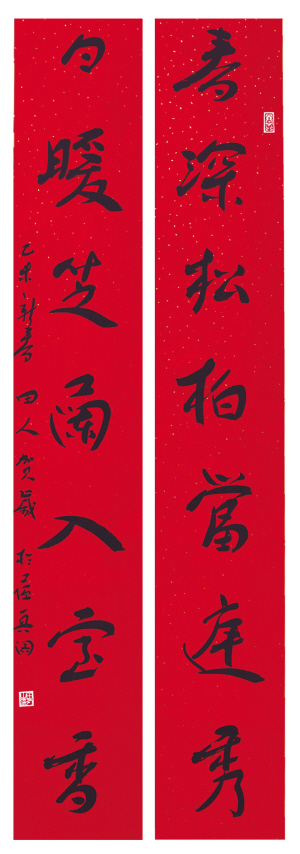 春深松柏當庭秀
日暖芝蘭入室香
乙未新春 田人賀歲 於